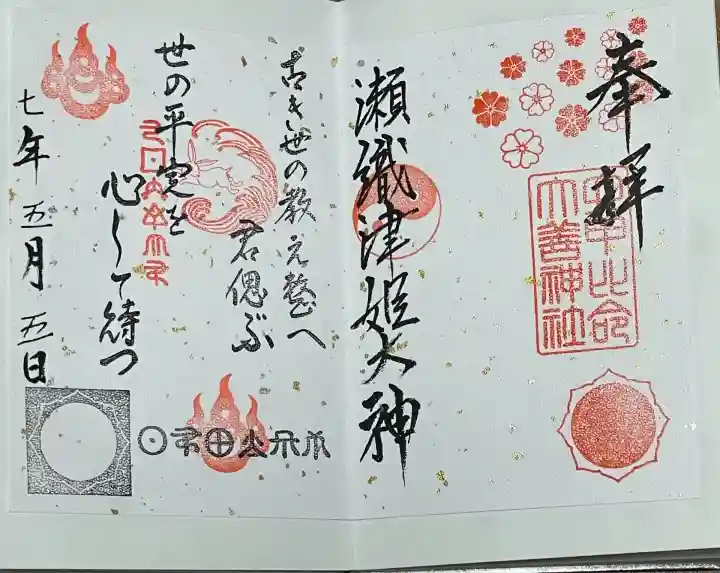 奉拝
安甲比命
大善神社
瀬織津姫大神
古き世の教え整へ
君偲ぶ
世の平定を
心して待つ
七年五月五日